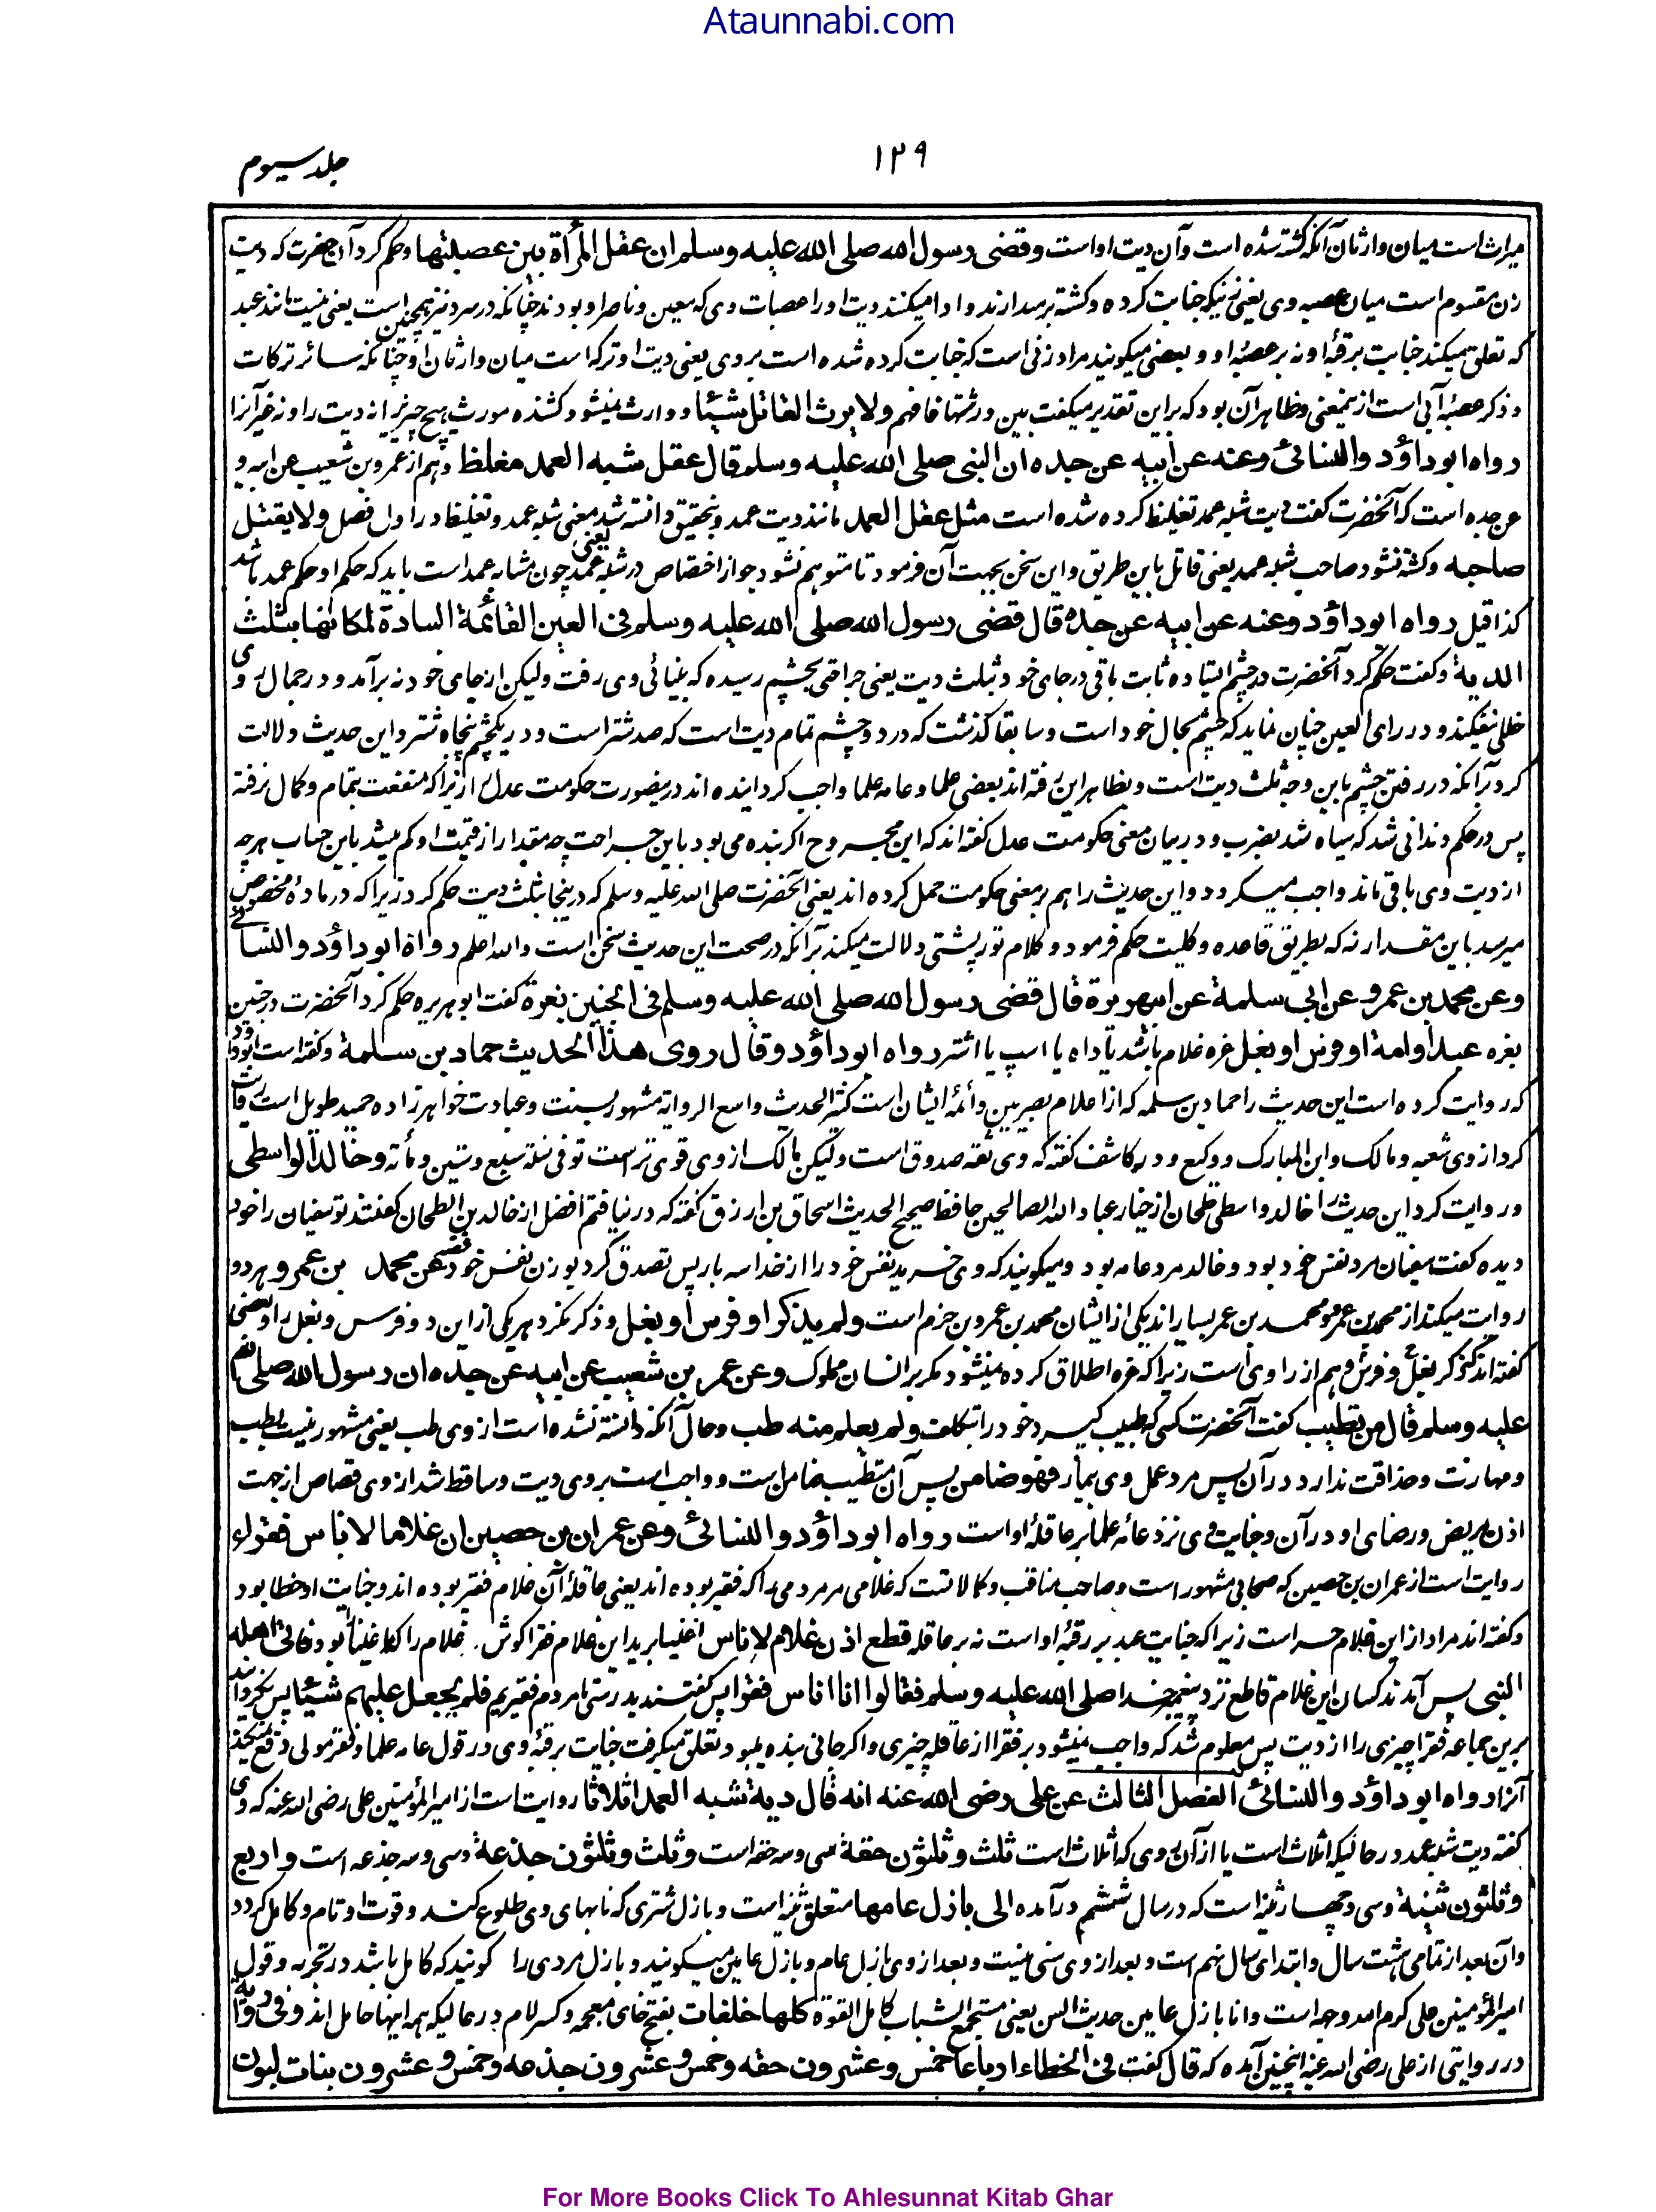 Ataunnabi.com
۱۲۹
جلد سیوم
میراث است میان وارثان آنکه کشته شده است وآن دیت او است وقضی رسول الله صلی الله علیه وسلم ان عقل المرأة بین عصبتها وحکم کرد آن حضرت که دیت
زن مقسوم است میان عصبه وی یعنی زنیکه جنایت کرده وکشته برمیدارند وادا میکنند دیت او را عصبات وی که معین وناصر او بودند چنانکه در مرد نیز همچنین است یعنی نیست مانند عبد
که تعلق میکند جنایت برقبۀ او نه بر عصبۀ او وبعضی میگویند مراد زنی است که جنایت کرده شده است بروی یعنی دیت او ترکه است میان وارثان او چنانکه سائر ترکات
وذکر عصبۀ آبی است ازینمعنی وظاهر آن بود که براین تقدیر میگفت بین ورثتها فافهم ولا یرث القاتل شیئا ووارث نمیشود کشنده مورث هیچ چیز را نه دیت را ونه غیر آنرا
رواه ابوداؤد والنسائی وعنه عن ابیه عن جده ان النبی صلی الله علیه وسلم قال عقل شبه العمد مغلظ وهم از عمرو بن شعیب عن ابیه و
عن جده است که آنحضرت گفت دیت شبه عمد تغلیظ کرده شده است مثل عقل العمد مانند دیت عمد وبتحقیق دانسته شد معنی شبه عمد وتغلیظ در اول فصل ولا یقتل
صاحبه وکشته نشود صاحب شبه عمد یعنی قاتل باین طریق واین سخن بجهت آن فرمود تا متوهم نشود جواز اختصاص در شبه عمد یعنی چون مشابه عمد است باید که حکم او حکم عمد باشد
کذا قیل رواه ابوداؤد وعنه عن ابیه عن جده قال قضی رسول الله صلی الله علیه وسلم فی العین القائمة السادة لمکانها بثلث
الدیة وگفت حکم کرد آنحضرت در چشم ایستاده ثابت باقی در جای خود بثلث دیت یعنی جراحتی بچشم رسیده که بینائی وی رفت ولیکن از جای خود نه برآمد ودر جمال وی
خللی نیفکند ودر رای العین چنان نماید که چشم بحال خود است وسابقا گذشت که در دو چشم تمام دیت است که صد شتر است ودر یکچشم پنجاه شتر واین حدیث دلالت
کرد برآنکه در رفتن چشم باین وجه ثلث دیت است وبظاهر این رفته اند بعضی علما وعامه علما واجب گردانیده اند درینصورت حکومت عدل را زیراکه منفعت بتمام وکمال نرفته
پس در حکم دندانی شد که سیاه شد بضرب ودر بیان معنی حکومت عدل گفته اند که این مجروح اگر بنده می بود باین جراحت چه مقدار از قیمت او کم میشد باین حساب هرچه
از دیت وی باقی ماند واجب میگردد واین حدیث را هم برمعنی حکومت حمل کرده اند یعنی آنحضرت صلی الله علیه وسلم که درینجا بثلث دیت حکم کرد زیراکه در مادۀ مخصوص
میرسد باین مقدار نه که بطریق قاعده وکلیت حکم فرمود وکلام تورپشتی دلالت میکند برآنکه در صحت این حدیث سخن است والله اعلم رواه ابوداؤد والنسائی
وعن محمد بن عمرو عن ابی سلمة عن ابی هریرة قال قضی رسول الله صلی الله علیه وسلم فی الجنین بغرة گفت ابوهریره حکم کرد آنحضرت در جنین
بغره عبد او امة او فرس او بغل غره غلام باشد یا داه یا اسپ یا استر رواه ابوداؤد وقال روی هذا الحدیث حماد بن سلمة وگفته است ابوداؤد
که روایت کرده است این حدیث را حماد بن سلمه که از اعلام بصریین وأئمه ایشان است کثیر الحدیث واسع الروایة مشهور بسنت وعبادت خواهرزاده حمید طویل است روایت
کرد از وی شعبه ومالک وابن المبارک ووکیع ودر کاشف گفته که وی ثقه صدوق است ولیکن مالک از وی قوی تر است توفی سنة سبع وستین ومأته وخالد الواسطی
وروایت کرد این حدیث را خالد واسطی طحان از خیار عباد الله الصالحین حافظ صحیح الحدیث اسحاق بن ازرق گفته که در نیافتم افضل از خالد بن الطحان گفتند تو سفیان را خود
دیده گفت سفیان مرد نفس خود بود وخالد مرد عامه بود ومیگویند که وی خرید نفس خود را از خدا سه بار پس تصدق کرد بوزن نفس خود فضه عن محمد بن عمرو هردو
روایت میکند از محمد بن عمرو ومحمد بن عمر بسیار اند یکی از ایشان محمد بن عمرو بن حزم است ولم یذکر او فرس او بغل وذکر نکرد هریکی از این دو فرس وبغل را وبعضی
گفته اند که ذکر بغل وفرس وهم از راوی است زیراکه غره اطلاق کرده نمیشود مگر بر انسان مملوک وعن عمرو بن شعیب عن ابیه عن جده ان رسول الله صلی الله
علیه وسلم قال من تطبب گفت آنحضرت کسی که طبیب گیرد خود را بتکلف ولم یعلم منه طب وحال آنکه دانسته نشده است از وی طب یعنی مشهور نیست بطب
ومهارت وحذاقت ندارد در آن پس مرد عمل وی بیمار فهو ضامن پس آن متطبب ضامن است وواجب است بروی دیت وساقط شد از وی قصاص از جهت
اذن مریض ورضای او در آن وجنایت وی نزد عامۀ علما بر عاقلۀ او است رواه ابوداؤد والنسائی وعن عمران بن حصین ان غلاما لاناس فقراء
روایت است از عمران بن حصین که صحابی مشهور است وصاحب مناقب وکمالات است که غلامی مر مردمی را که فقیر بوده اند یعنی عاقلۀ آن غلام فقیر بوده اند وجنایت او خطا بود
وگفته اند مراد از این غلام حر است زیراکه جنایت عبد بر رقبۀ او است نه بر عاقله قطع اذن غلام لاناس اغنیا برید این غلام فقرا گوش غلام را که اغنیا بود فاتی اهله
النبی پس آمدند کسان این غلام قاطع نزد پیغمبر خدا صلی الله علیه وسلم فقالوا انا اناس فقراء پس گفتند بدرستی ما مردم فقیریم فلم یجعل علیهم شیئا پس نگردانید
برین جماعه فقرا چیزی را از دیت پس معلوم شد که واجب نمیشود بر فقرا از عاقله چیزی واگر جانی بنده میبود تعلق میگرفت جنایت برقبۀ وی در قول عامه علما وفقر مولی دفع نمیکند
آنرا رواه ابوداؤد والنسائی الفصل الثالث عن علی رضی الله عنه انه قال دیة شبه العمد اثلاثا روایت است از امیر المؤمنین علی رضی الله عنه که وی
گفته دیت شبه عمد در حالیکه اثلاث است یا از آن روی که اثلاث است ثلث وثلثون حقة سی وسه حقه است وثلث وثلثون جذعة وسی وسه جذعه است واربع
وثلثون ثنیة وسی وچهار ثنیه است که در سال ششم درآمده الی باذل عامها متعلق ثنیه است وبازل شتری که نابهای وی طلوع کند وقوت او تام وکامل گردد
وآن بعد از تمامی هشت سال وابتدای سال نهم است وبعد از وی سنی نیست وبعد از وی بازل عام وبازل عامین میگویند وبازل مردی را گویند که کامل باشد در تجربه وقول
امیر المؤمنین علی کرم الله وجهه است وانا بازل عامین حدیث السن یعنی مستجمع الشباب کامل القوة کلها خلفات بفتح خای معجمه وکسر لام در حالیکه همه اینها حامل اند وفی روایة
در روایتی از علی رضی الله عنه اینچنین آمده که قال گفت فی الخطاء ارباعا خمس وعشرون حقه وخمس وعشرون جذعه وخمس وعشرون بنات لبون
For More Books Click To Ahlesunnat Kitab Ghar